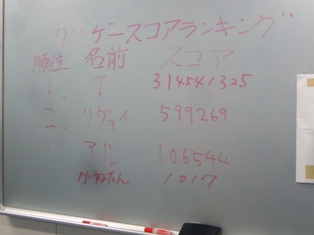 クソゲースコアランキング
順位 名前 スコア
1. T 314541325
2. リヴァイ 599269
3. アル 106544
かねたん 1017